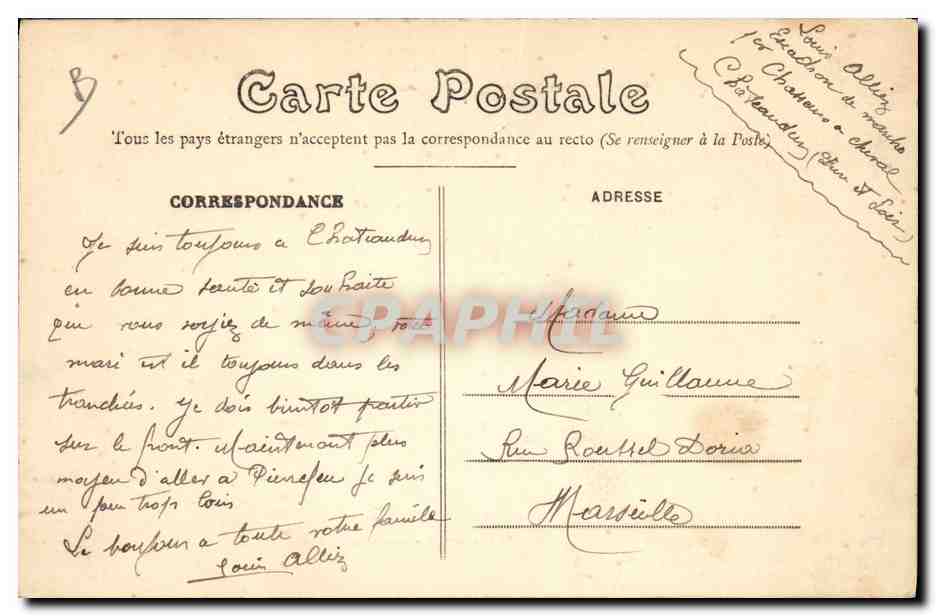 B
Carte Postale
Tous les pays étrangers n'acceptent pas la correspondance au recto (Se renseigner à la Poste)
Louis Alliez
Escadron de marche
1er Chasseurs a cheval
Châteaudun (Eure et Loir)
CORRESPONDANCE
Je suis toujours a Chateaudun
en bonne santé et souhaite
que vous soyiez de même, votre
mari est il toujours dans les
tranchées. Je dois bientot partir
sur le front. Maintenant plus
moyen d'aller a Pierrefeu je suis
un peu trop loin
Le bonjour a toute votre famille
Louis Alliez
ADRESSE
Madame
Marie Guillaume
Rue Roussel Doria
Marseille
CPAPHIL